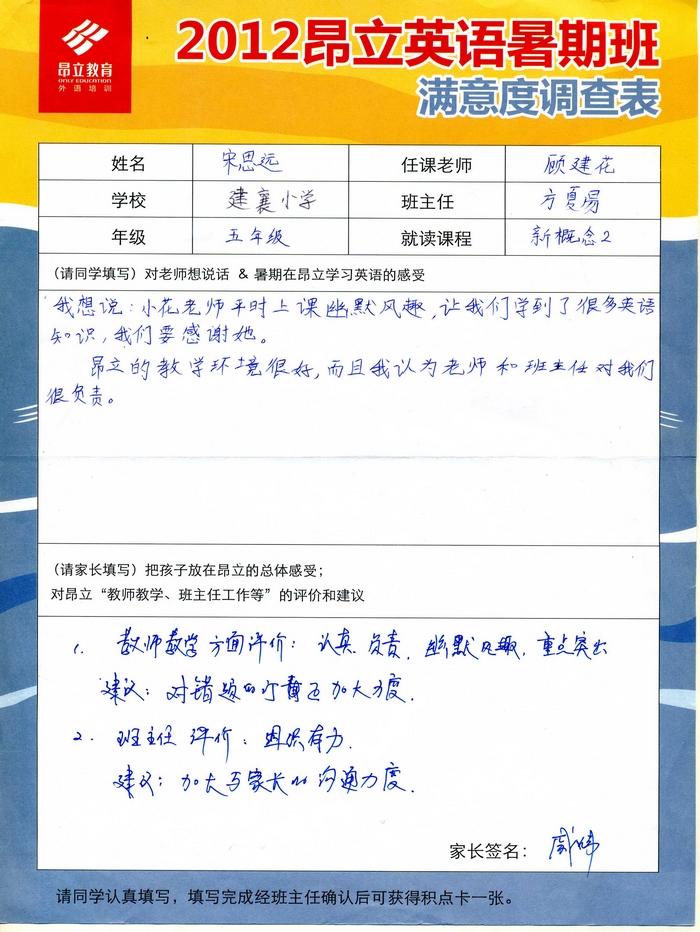 昂立教育
ONLY EDUCATION
外语培训
2012昂立英语暑期班
满意度调查表
姓名 宋思远 任课老师 顾建花
学校 建襄小学 班主任 方夏易
年级 五年级 就读课程 新概念2
(请同学填写)对老师想说话 & 暑期在昂立学习英语的感受
我想说:小花老师平时上课幽默风趣,让我们学到了很多英语
知识,我们要感谢她。
昂立的教学环境很好,而且我认为老师和班主任对我们
很负责。
(请家长填写)把孩子放在昂立的总体感受;
对昂立“教师教学、班主任工作等”的评价和建议
1. 教师教学方面评价:认真、负责、幽默风趣、重点突出
建议:对错题的订正加大力度.
2. 班主任 评价:组织有力.
建议:加大与家长的沟通力度.
家长签名:
请同学认真填写,填写完成经班主任确认后可获得积点卡一张。